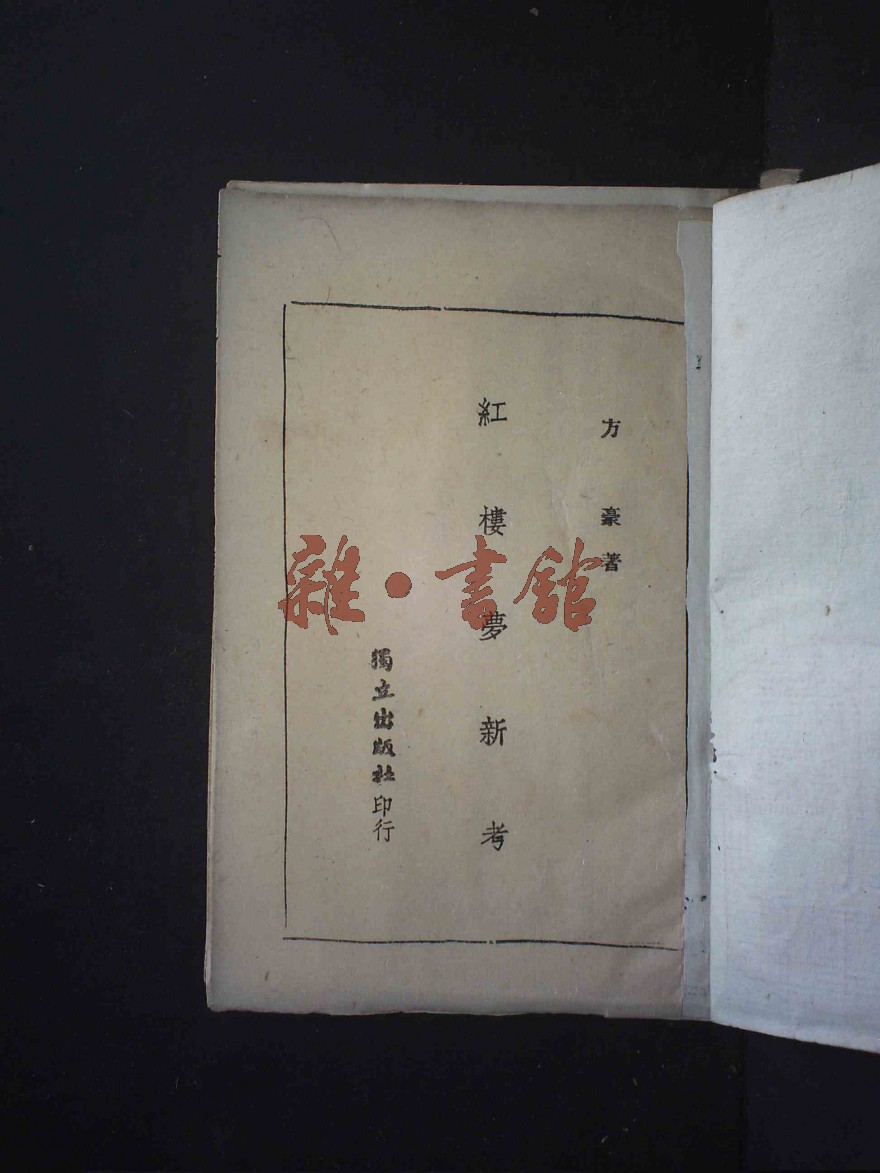 方豪著
紅樓夢新考
獨立出版社印行
雜·書館